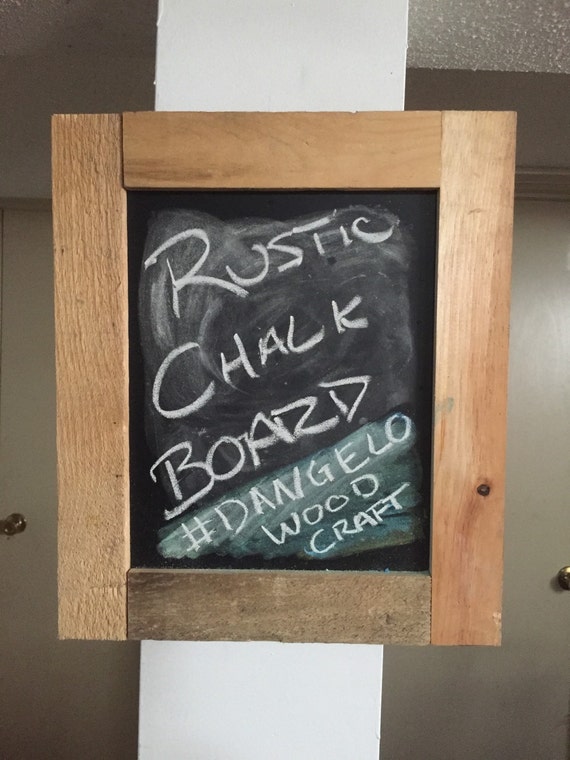 RUSTIC
CHALK
BOARD
#DANGELO
WOOD
CRAFT